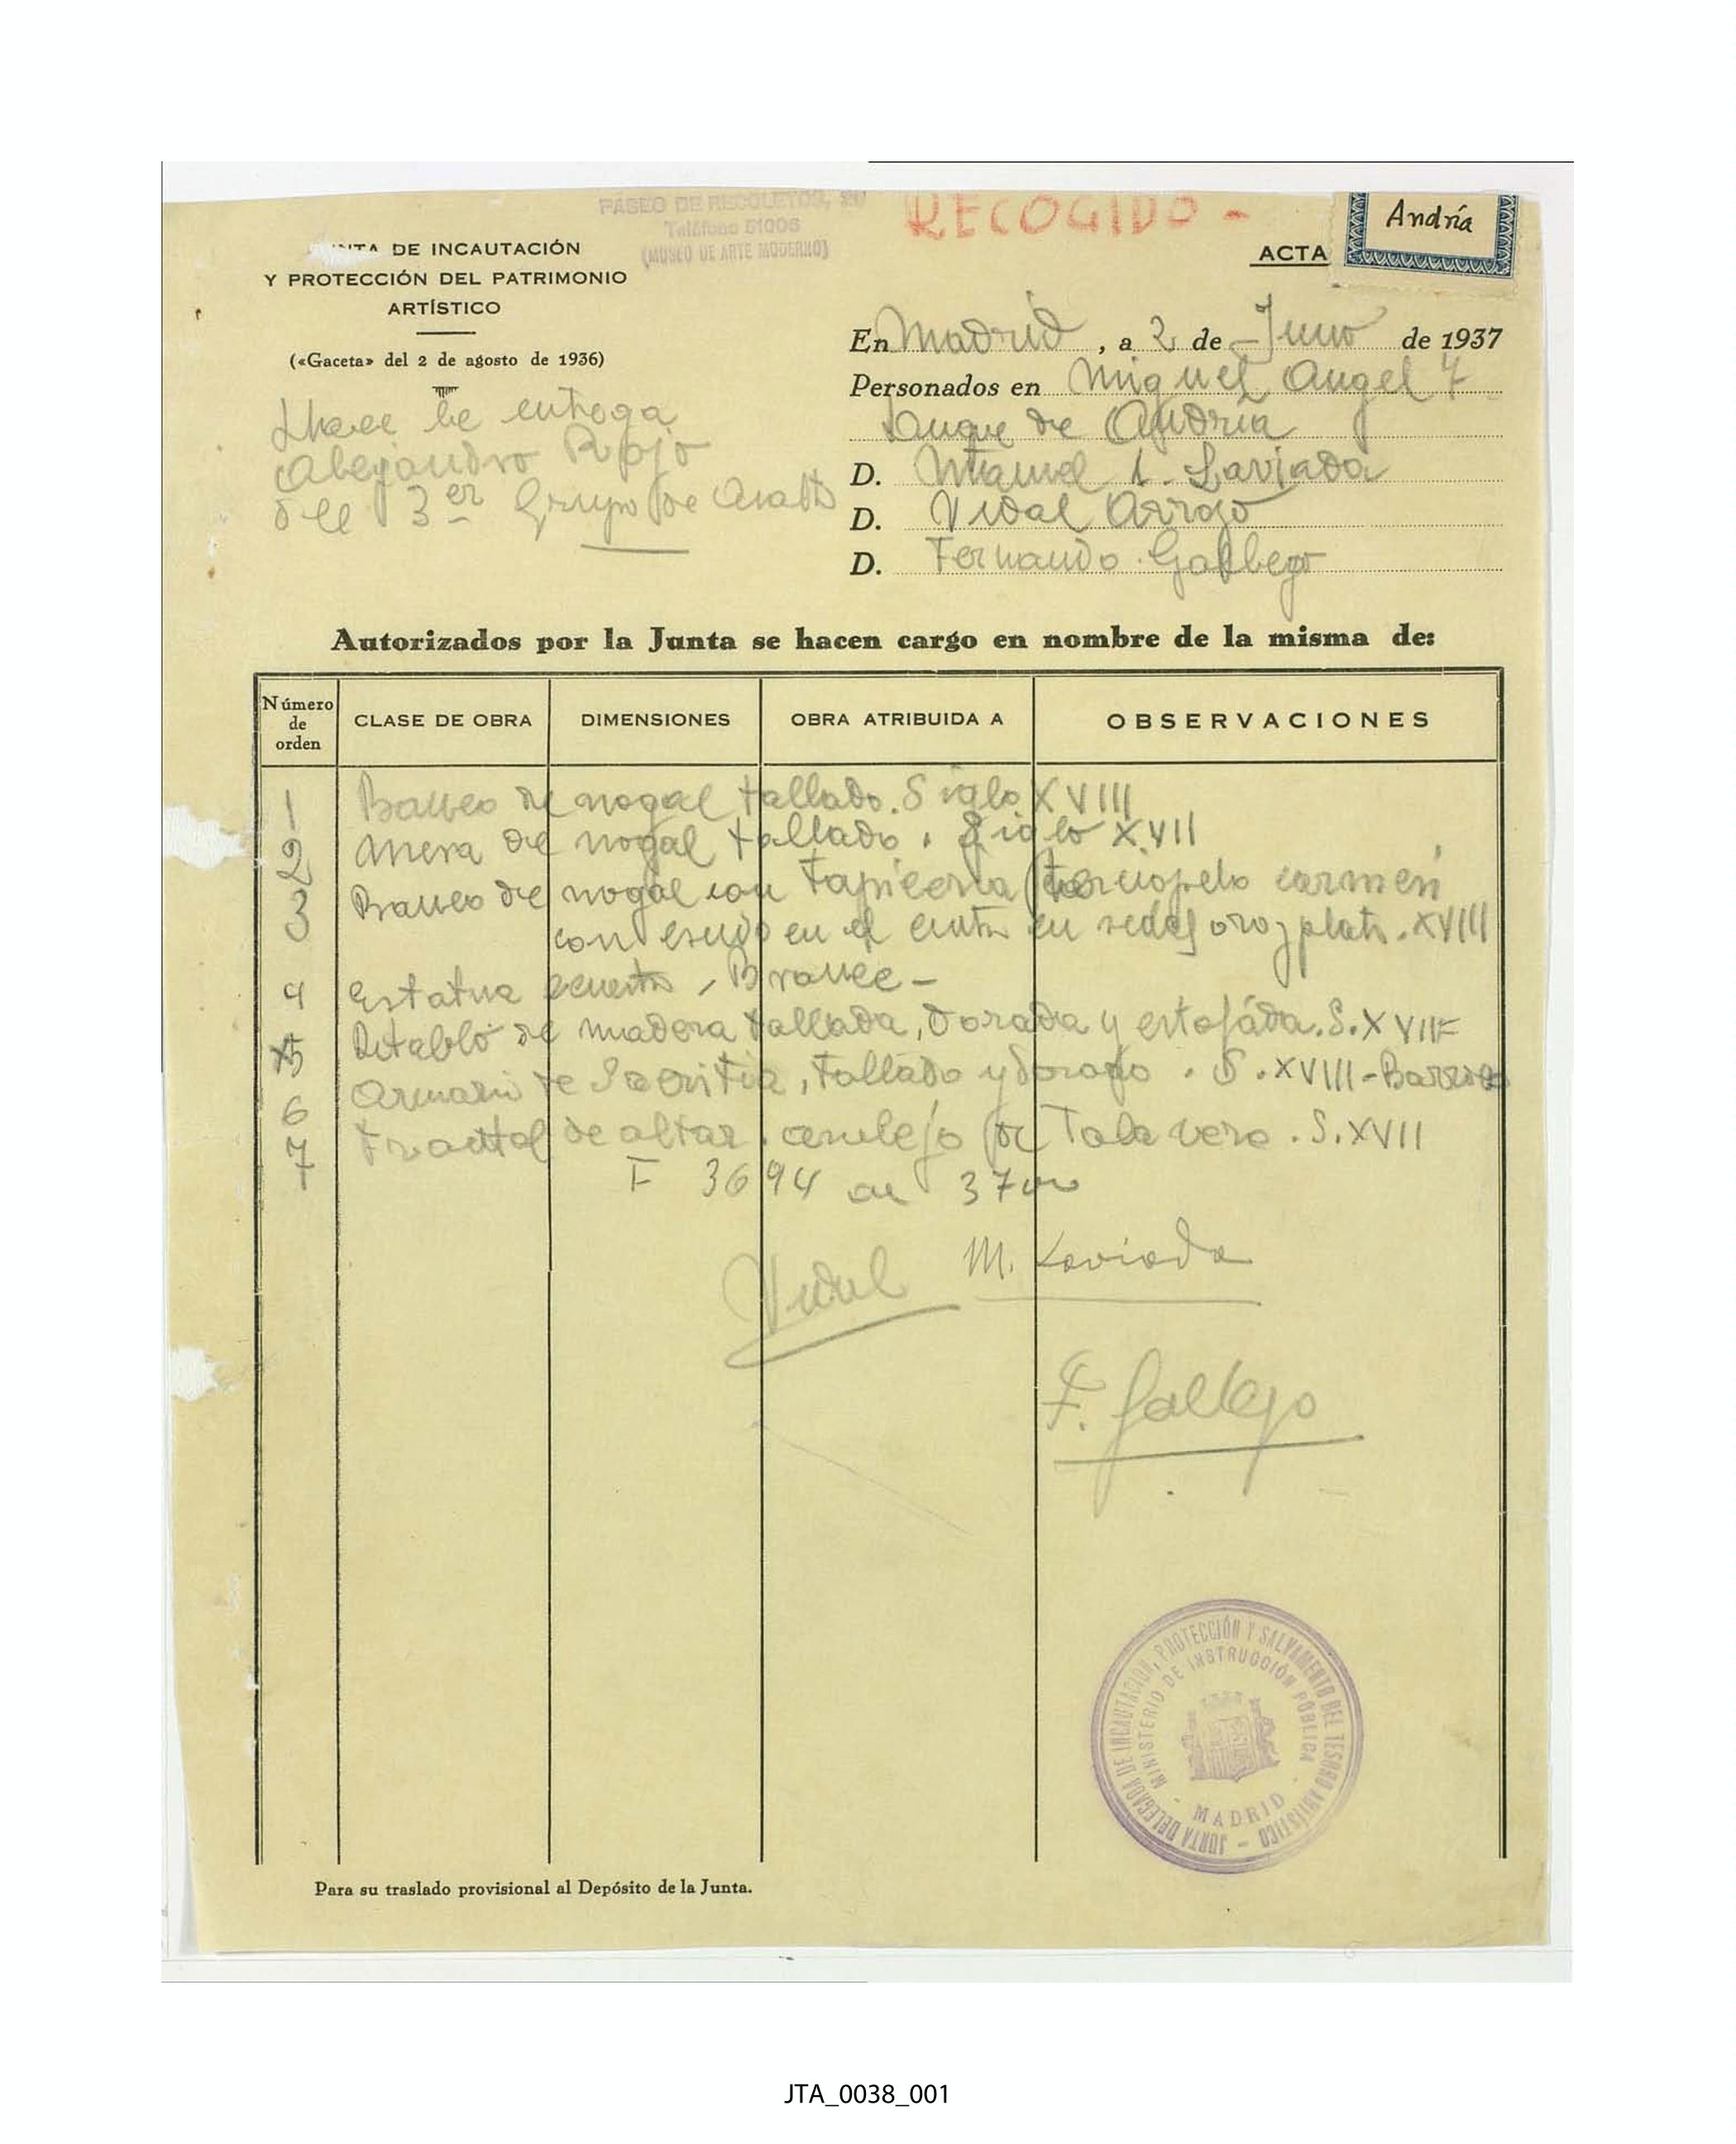 PASEO DE RECOLETOS, 20
Teléfono 51006
(MUSEO DE ARTE MODERNO)
RECOGIDO -
Andría
ACTA
JUNTA DE INCAUTACIÓN
Y PROTECCIÓN DEL PATRIMONIO
ARTÍSTICO
(«Gaceta» del 2 de agosto de 1936)
Hace le entrega
Alejandro Rojo
del 3er Grupo de Asalto
En Madrid, a 2 de Junio de 1937
Personados en Miguel Angel 7
Duque de Andria
D. Manuel A. Laviada
D. Vidal Arroyo
D. Fernando Gallego
Autorizados por la Junta se hacen cargo en nombre de la misma de:
Número de orden CLASE DE OBRA DIMENSIONES OBRA ATRIBUIDA A OBSERVACIONES
1 Banco de nogal tallado. Siglo XVIII
2 Mesa de nogal tallado. Siglo XVII
3 Banco de nogal con tapiceria (terciopelo carmesí
con escudo en el centro en sedas oro y plata. XVIII
4 Estatua - Bronce -
5 Retablo de madera tallada, dorada y estofada. S. XVII
6 Armario de Sacristia, tallado y dorado. S. XVIII - Barroco
7 Frontal de altar. azulejo de Talavera. S. XVII
F 3694 37
Vidal M. Laviada
F. Gallego
JUNTA DELEGADA DE INCAUTACIÓN, PROTECCIÓN Y SALVAMENTO DEL TESORO ARTÍSTICO -
MINISTERIO DE INSTRUCCIÓN PÚBLICA
- MADRID -
Para su traslado provisional al Depósito de la Junta.
JTA_0038_001